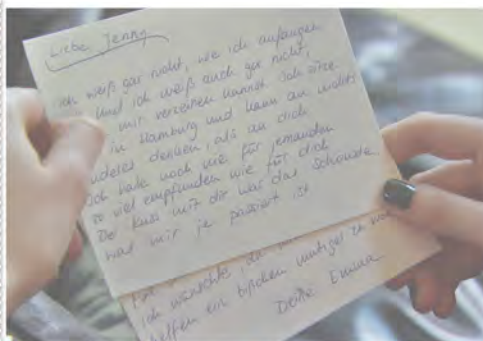 Liebe Jenny
ich weiß gar nicht, wie ich anfangen
Und ich weiß auch gar nicht,
mir verzeihen kannst. Ich sitze
in Hamburg und kann an nichts
anderes denken, als an dich
Ich habe noch nie für jemanden
so viel empfunden wie für dich
Der Kuss mit dir war das Schönste
was mir je passiert ist
ich wünschte, du
helfen ein bisschen mutiger zu
Deine Emma